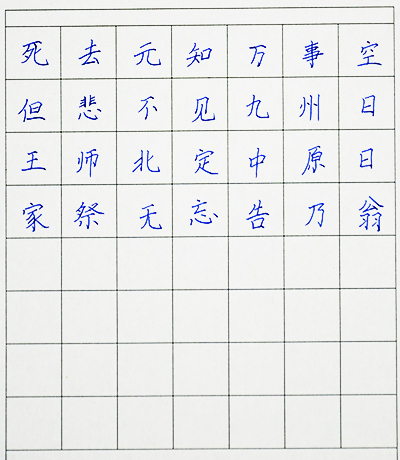 死去元知万事空
但悲不见九州日
王师北定中原日
家祭无忘告乃翁